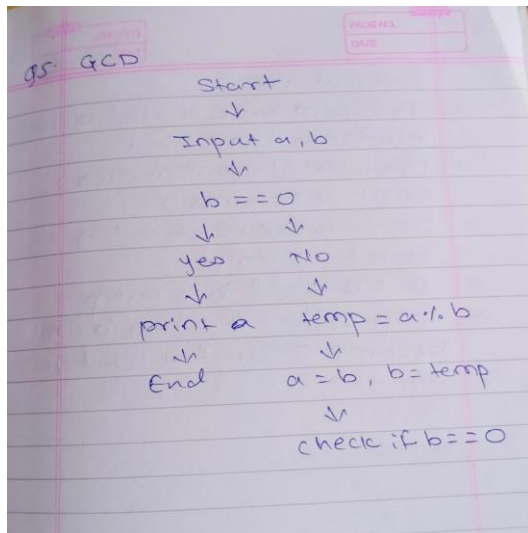 PAGE NO.
DATE
95. GCD
Start
↓
Input a, b
↓
b == 0
↓ ↓
yes No
↓ ↓
print a temp = a % b
↓ ↓
End a = b, b = temp
↓
check if b == 0